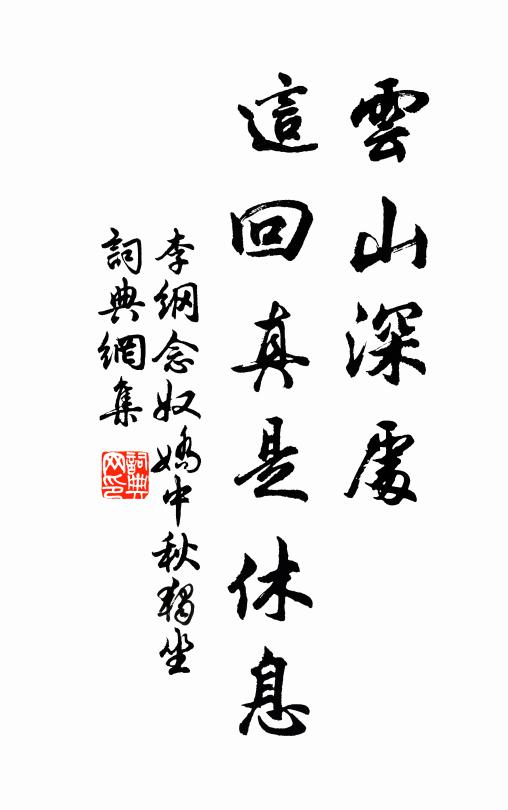 雲山深處
這回真是休息
李綱念奴嬌中秋獨坐
詞典網集
詞典網印